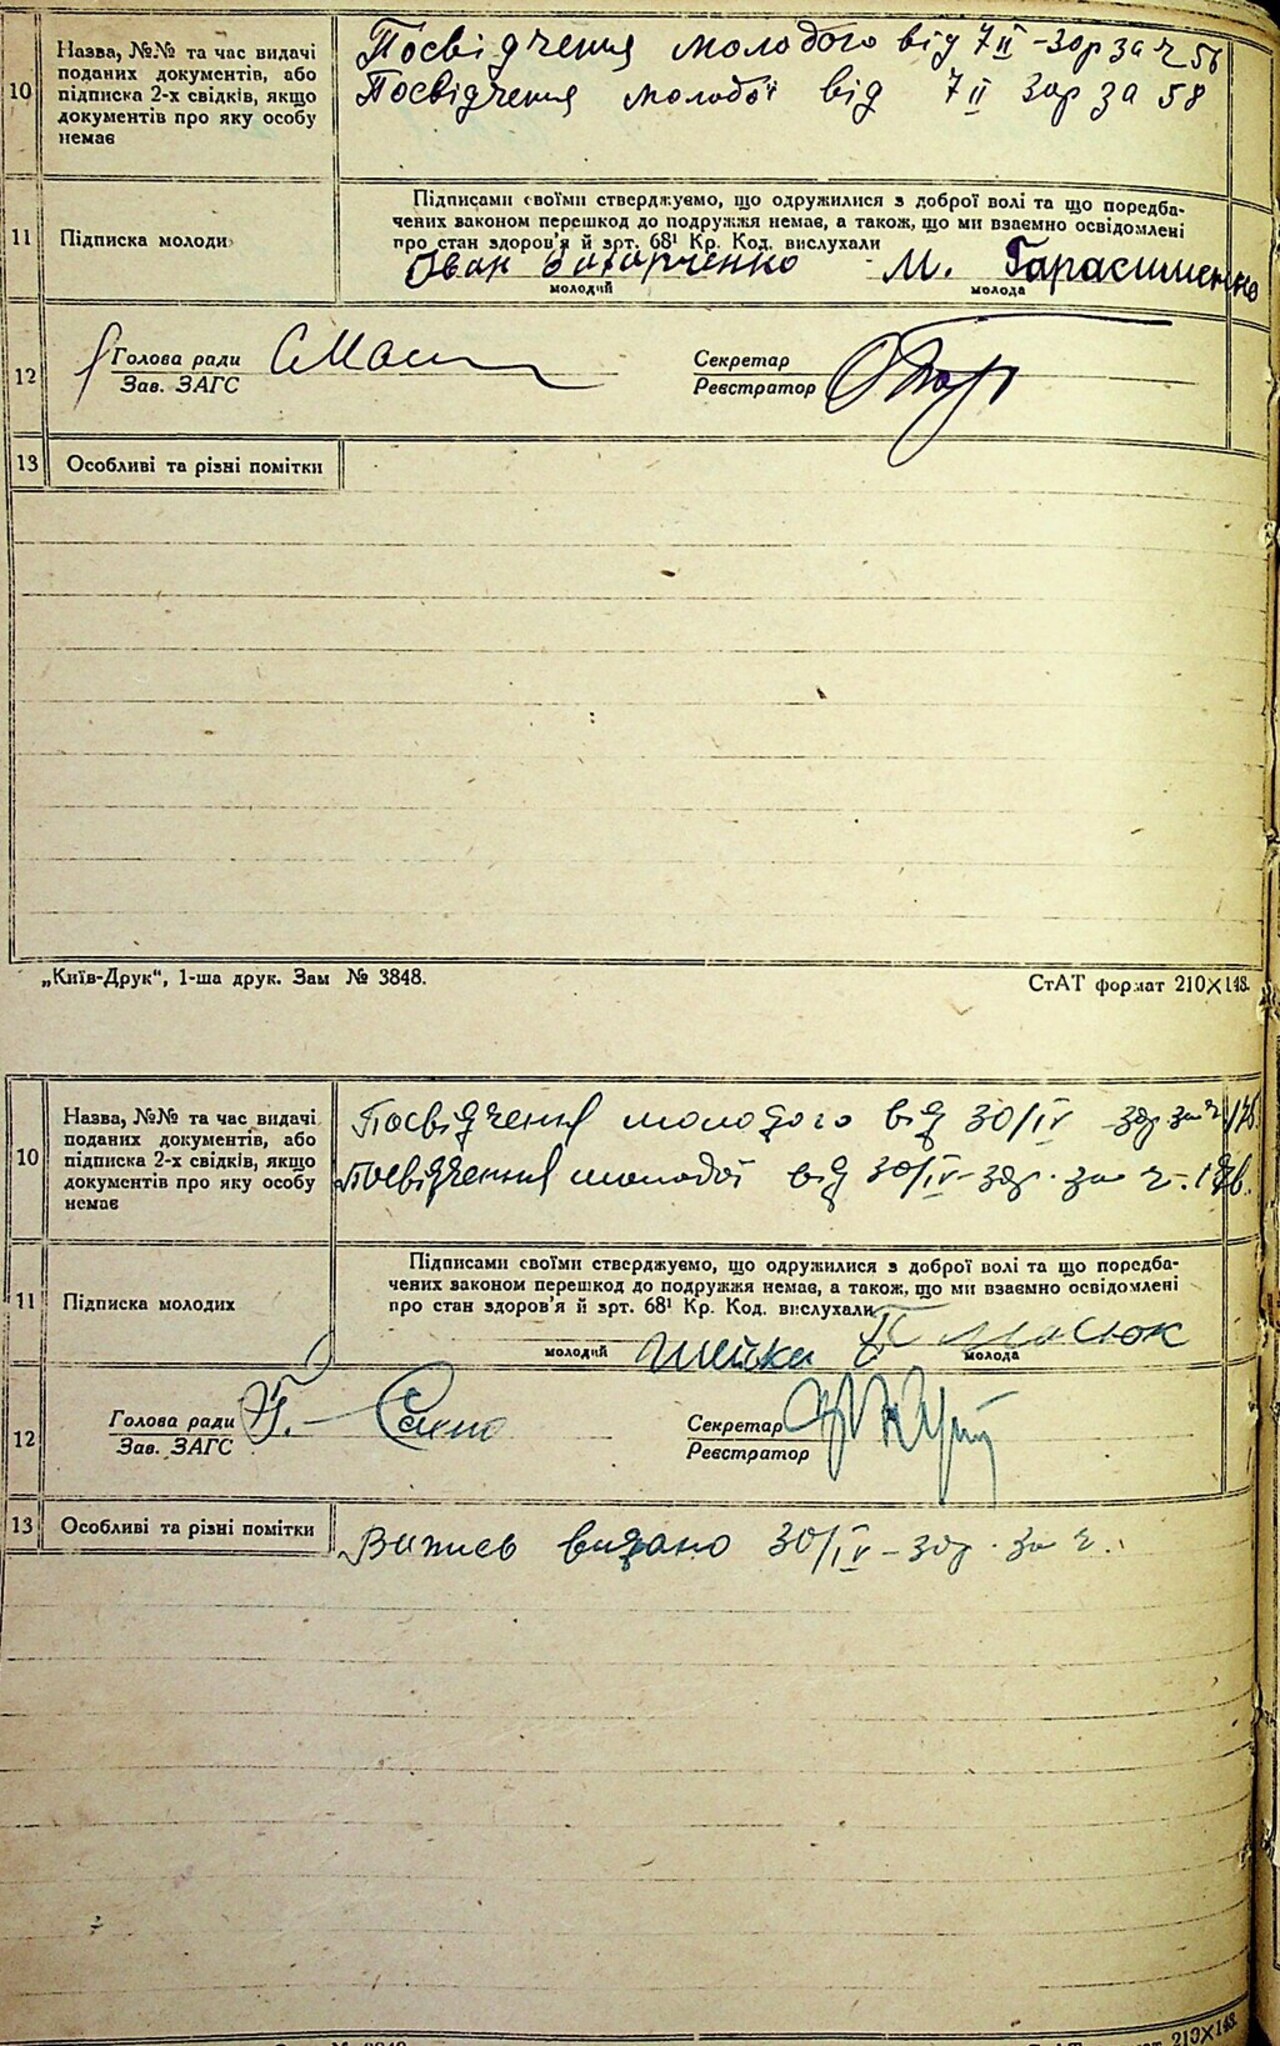 10
Назва, №№ та час видачі
поданих документів, або
підписка 2-х свідків, якщо
документів про яку особу
немає
Посвідчення молодого від 7 ІІ - 30р за ч 56
Посвідчення молодої від 7 ІІ 30р за 58
11
Підписка молоди
Підписами своїми стверджуємо, що одружилися з доброї волі та що поредба-
чених законом перешкод до подружжя немає, а також, що ми взаємно освідомлені
про стан здоров'я й зрт. 68¹ Кр. Код. вислухали
Іван Захарченко М. Гарасименко
молодий молода
12
Голова ради
Зав. ЗАГС
Секретар
Реєстратор
13 Особливі та різні помітки
„Київ-Друк“, 1-ша друк. Зам № 3848.
СтАТ формат 210×148.
10
Назва, №№ та час видачі
поданих документів, або
підписка 2-х свідків, якщо
документів про яку особу
немає
Посвідчення молодого від 30/IV 30р. за ч
Посвідчення молодої від 30/IV - 30р. за ч.
11
Підписка молодих
Підписами своїми стверджуємо, що одружилися з доброї волі та що передба-
чених законом перешкод до подружжя немає, а також, що ми взаємно освідомлені
про стан здоров'я й зрт. 68¹ Кр. Код. вислухали
молодий Шейка Масюк молода
12
Голова ради
Зав. ЗАГС
Секретар
Реєстратор
13 Особливі та різні помітки
Випись видано 30/IV - 30р. за ч.
210×148.